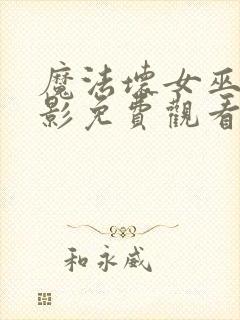 魔法壞女巫
影免費觀看
和永威